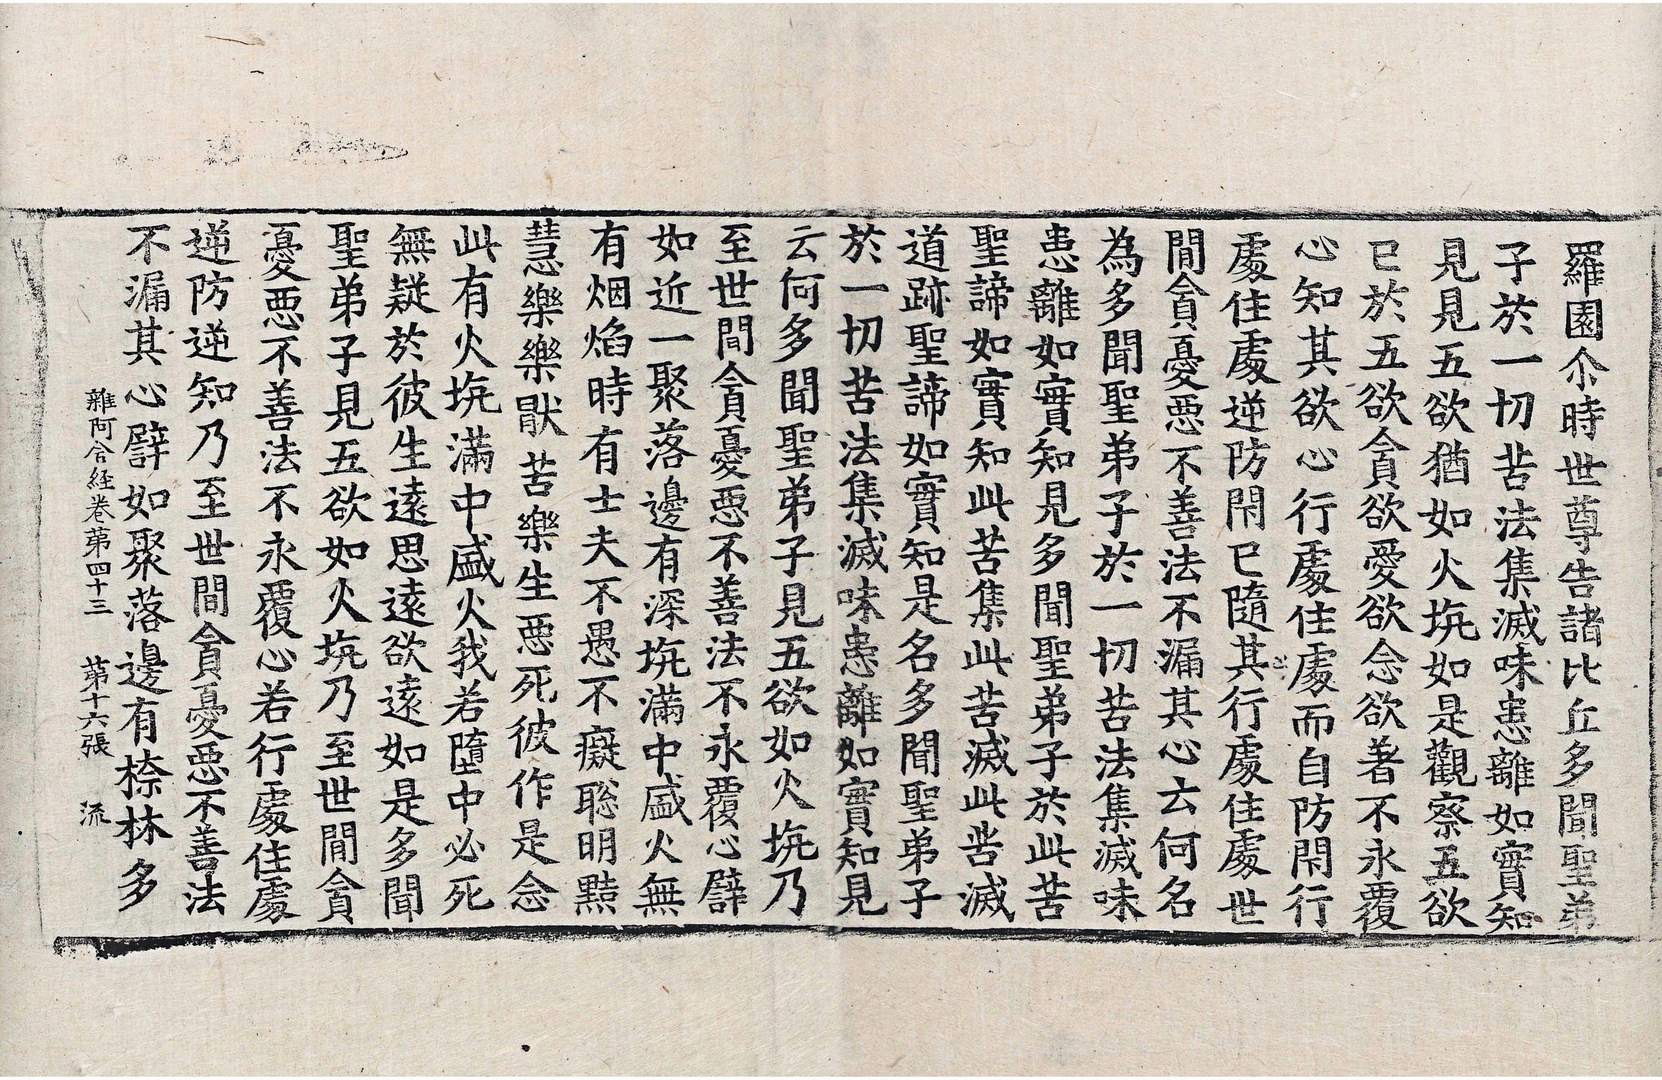 羅園尒時世尊告諸比丘多聞聖弟
子於一切苦法集滅味患離如實知
見見五欲猶如火坑如是觀察五欲
已於五欲貪欲愛欲念欲著不永覆
心知其欲心行處住處而自防閑行
處住處逆防閑已隨其行處住處世
間貪憂惡不善法不漏其心云何名
為多聞聖弟子於一切苦法集滅味
患離如實知見多聞聖弟子於此苦
聖諦如實知此苦集此苦滅此苦滅
道跡聖諦如實知是名多聞聖弟子
於一切苦法集滅味患離如實知見
云何多聞聖弟子見五欲如火坑乃
至世間貪憂惡不善法不永覆心譬
如近一聚落邊有深坑滿中盛火無
有烟焰時有士夫不愚不癡聡明黠
慧樂樂猒苦樂生惡死彼作是念
此有火坑滿中盛火我若墮中必死
無疑於彼生遠思遠欲遠如是多聞
聖弟子見五欲如火坑乃至世間貪
憂惡不善法不永覆心若行處住處
逆防逆知乃至世間貪憂惡不善法
不漏其心譬如聚落邊有㮈林多
雜阿含経卷第四十三 第十六張 流